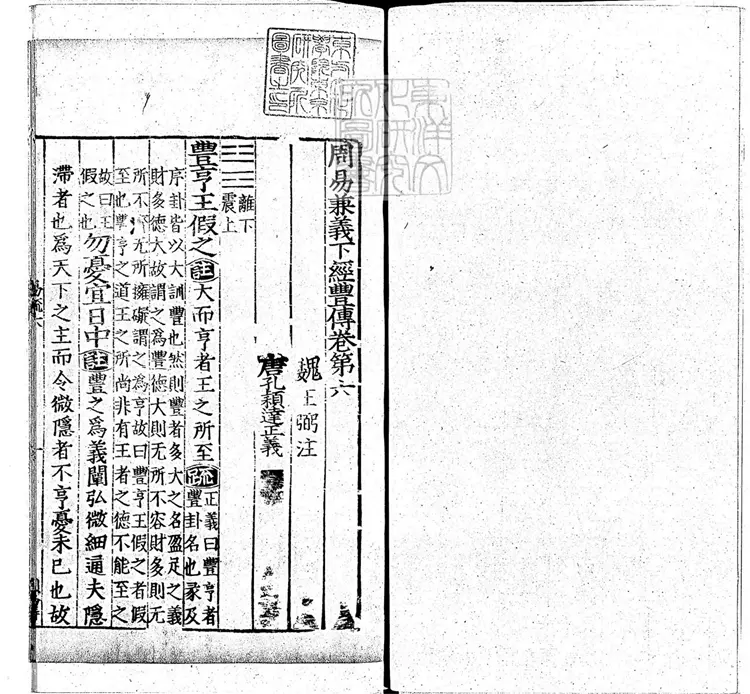 東方文化
學院東京
研究所
圖書之印
周易兼義下經豐傳卷第六
魏王弼注
唐孔穎達正義
離下
震上
豐亨王假之註大而亨者王之所至疏正義曰豐亨者
豐卦名也彖及
序卦皆以大訓豐也然則豐者多大之名盈足之義
財多德大故謂之為豐德大則无所不容財多則无
所不无所擁礙謂之為亨故曰豐亨王假之者假
至也豐亨之道王之所尚非有王者之德不能至之
故曰王
假之也勿憂宜日中註豐之為義闡弘微細通夫隱
滯者也為天下之主而令微隱者不亨憂未已也故